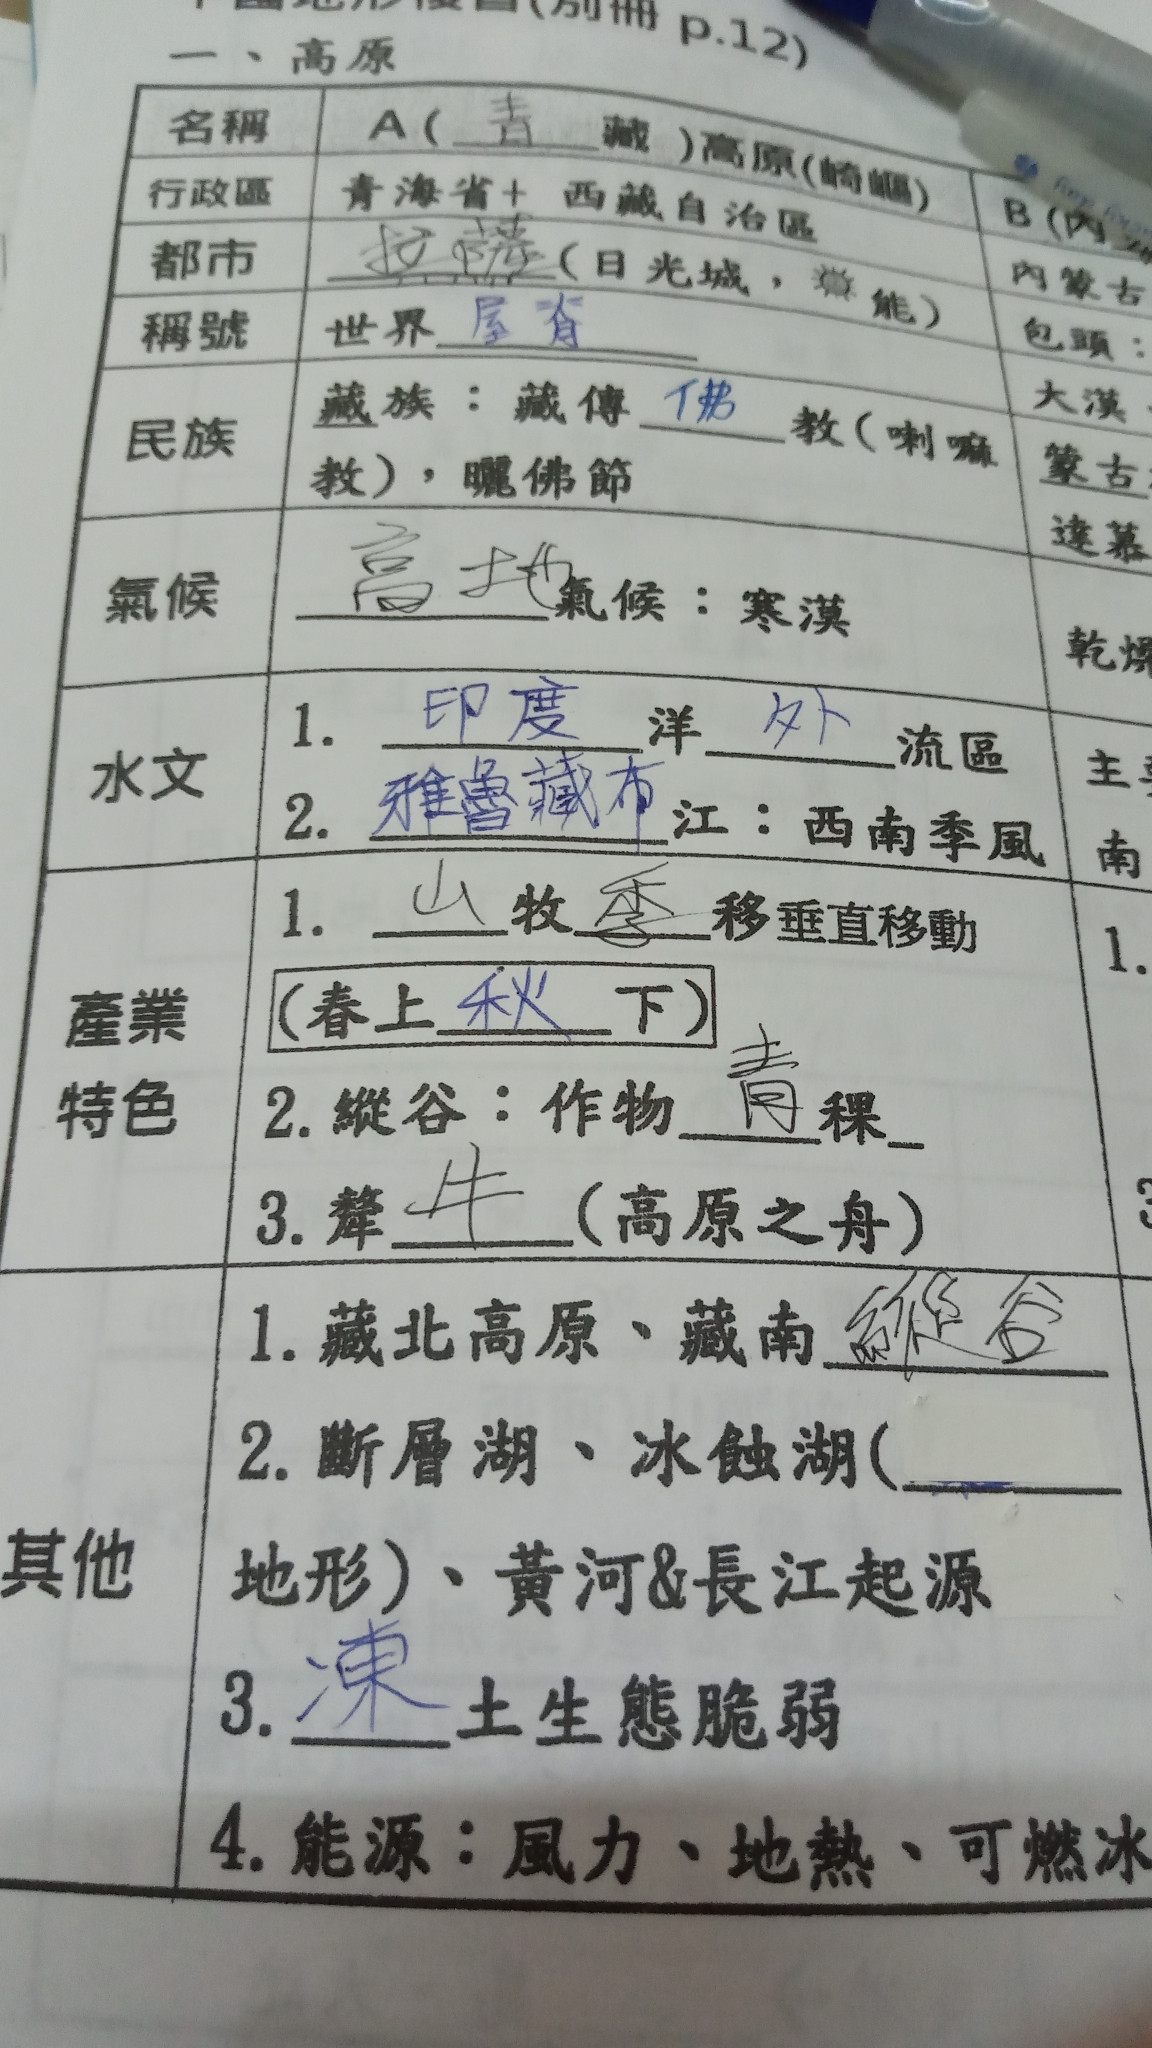 中國地形複習(別冊 p.12)
一、高原
名稱 A(青藏)高原(崎嶇)
行政區 青海省+ 西藏自治區
都市 拉薩(日光城，能)
稱號 世界屋脊
民族 藏族：藏傳佛教(喇嘛
教)，曬佛節
氣候 高地氣候：寒漠
水文 1. 印度洋外流區
2. 雅魯藏布江：西南季風
產業
特色
1. 山牧季移垂直移動
(春上秋下)
2. 縱谷：作物青稞_
3. 犛牛(高原之舟)
其他
1. 藏北高原、藏南縱谷
2. 斷層湖、冰蝕湖(
地形)、黃河&長江起源
3. 凍土生態脆弱
4. 能源：風力、地熱、可燃冰
B (內
內蒙古
包頭：
大漠
蒙古
達慕
乾燥
主要
南
1.
3